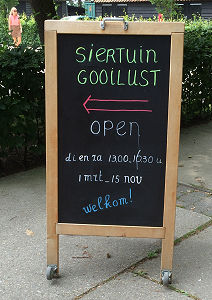 SIERTUIN
GOOILUST
OPEN
di en za 13.00-16.30 u
1 mrt - 15 nov
welkom!